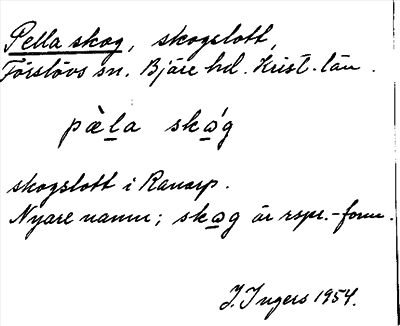 Pella skog, skogslott,
Förslövs sn. Bjäre hd. Krist. län.
pæ̀la skǫ́g
skogslott i Ranarp.
Nyare namn; skǫg är rspr.-form.
J. Ingers 1954.